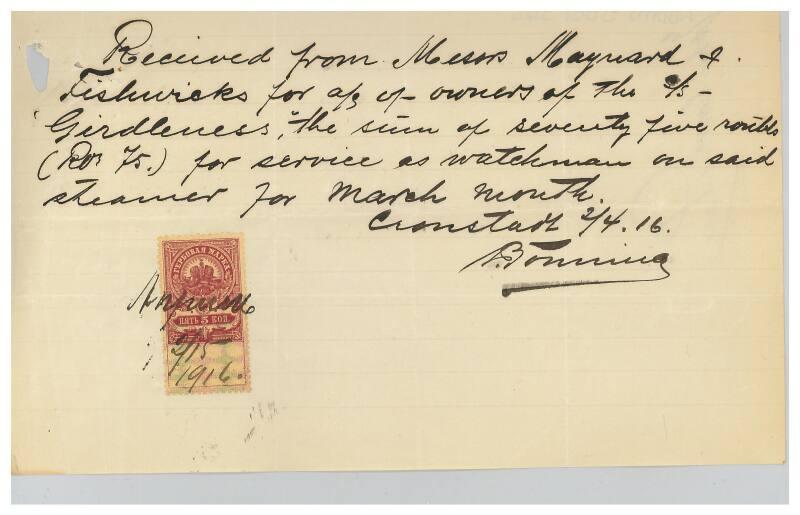 Received from Messrs Maynard &
Fishwicks for a/c of owners of the s/s
"Girdleness", the sum of seventy five roubls
(Ro: 75.) for service as watchman on said
steamer for March month.
Cronstadt 2/4. 16.
ГЕРБОВАЯ МАРКА
ПЯТЬ 5 КОП.
2/15
1916.